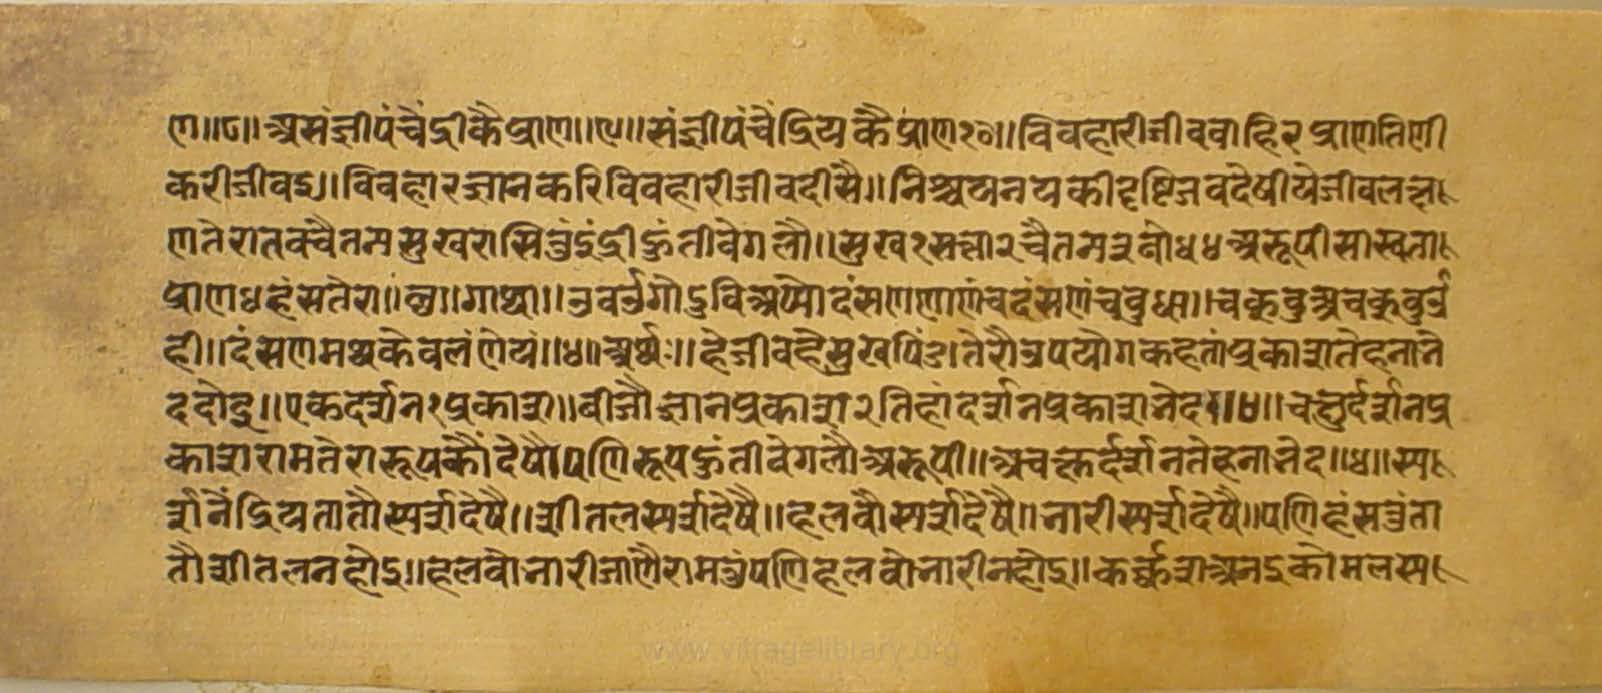 ण॥८॥असंज्ञीपंचैंद्रीकैप्राण॥९॥संज्ञीपंचेंद्रियकैप्राण१०॥विवहारीजीवचाहिरप्राणतिणी
करीजीवइ॥विवहारज्ञानकरिविवहारीजीवदीसै॥निश्चयनयकीदृष्टिजवदेषीयेजीवलक्ष
णतेरातवचैतन्यसुखरासितुंइंद्रीहुंतीवेगलौ॥सुख१सत्ता२चैतन्य३बोध४अरूपीसास्वता
प्राण४हंसतेरा॥छ॥गाथा॥उवउगोदुविअप्पोदंसणणाणंचदंसणंचवुधा॥चक्खुअचक्खुउ
ही॥दंसणमथकेवलंणेयं॥४॥अर्थः॥हेजीवहैसुखपिंड।तेरौउपयौगकहतांप्रकाशतेहनाभे
ददोइ॥एकदर्शन१प्रकाश॥बीजौज्ञानप्रकाश२तिहांदर्शनप्रकाशभेद॥४॥चक्षुर्दर्शनप्र
काशरामतेरारूपकौंदेषै।पणिरूपहुंतीवेगलौअरूपी॥अचक्षुर्दर्शनतेहनाभेद॥४॥स्प
र्शनेंद्रियतातौस्पर्शदेषै॥शीतलस्पर्शदेषै॥हलवौस्पर्शदेषै॥नारीस्पर्शदेषै॥पणिहंसतुंता
तौशीतलनहोइ॥हलवोनारीजाणैरामतुंपणिहलवोनारीनहोइ॥कर्कशअनइकोमलस्प